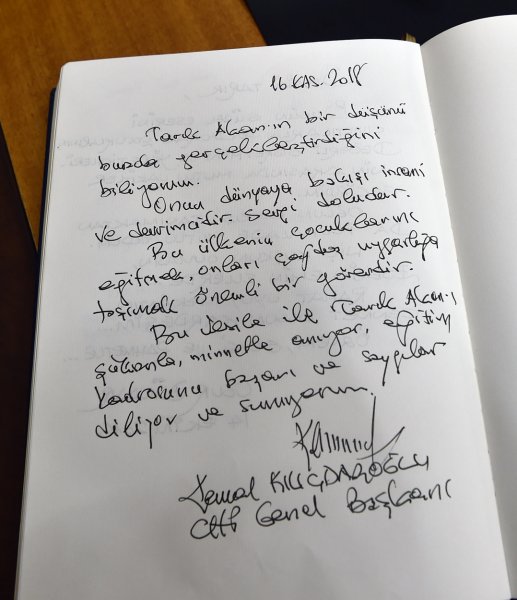 16 KAS. 2018
Tarık Akan'ın bir düşünü
burada gerçekleştirdiğini
biliyorum.
Onun dünyaya bakışı insani
ve devrimcidir. Sevgi doludur.
Bu ülkenin çocuklarını
eğitmek, onları çağdaş uygarlığa
taşımak önemli bir görevdir.
Bu vesile ile Tarık Akan'ı
şükranla, minnetle anıyor, eğitim
kadrosuna başarı ve saygılar
diliyor ve sunuyorum.
Kemal KILIÇDAROĞLU
CHP Genel Başkanı